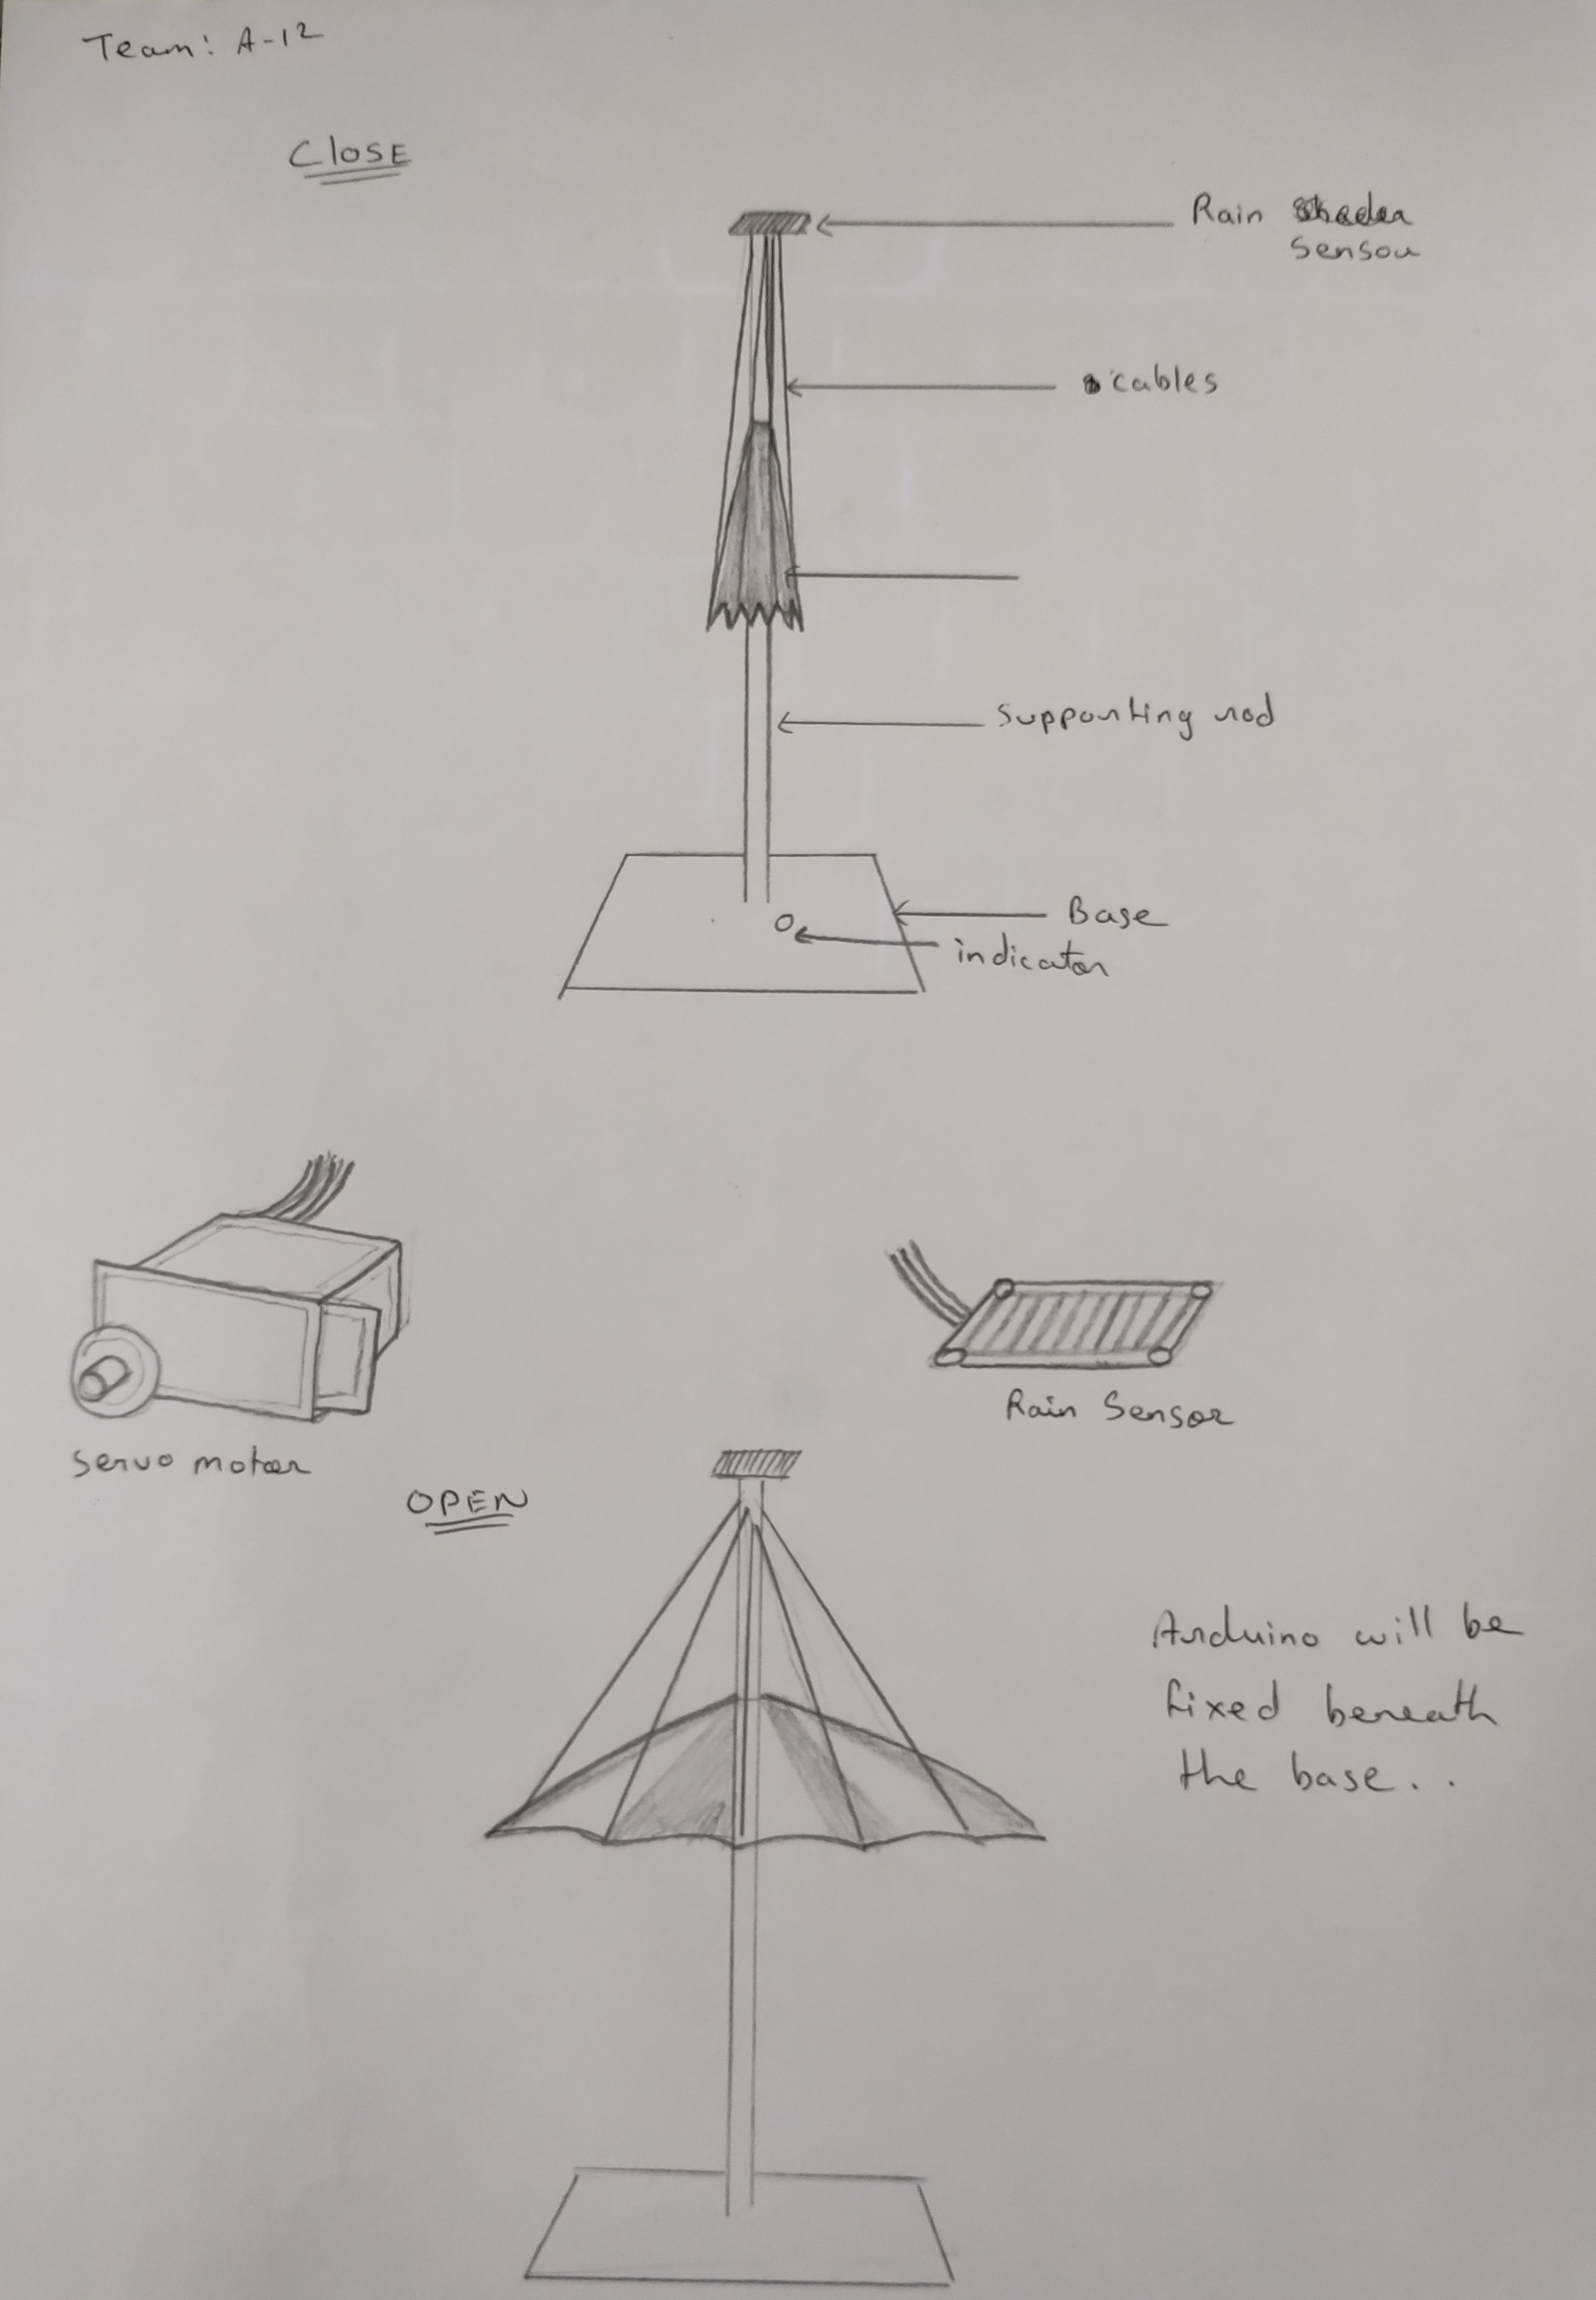 Team: A-12
CLOSE
Rain
Sensor
cables
Supporting rod
Base
indicator
Servo motor
Rain Sensor
OPEN
Arduino will be
fixed beneath
the base..